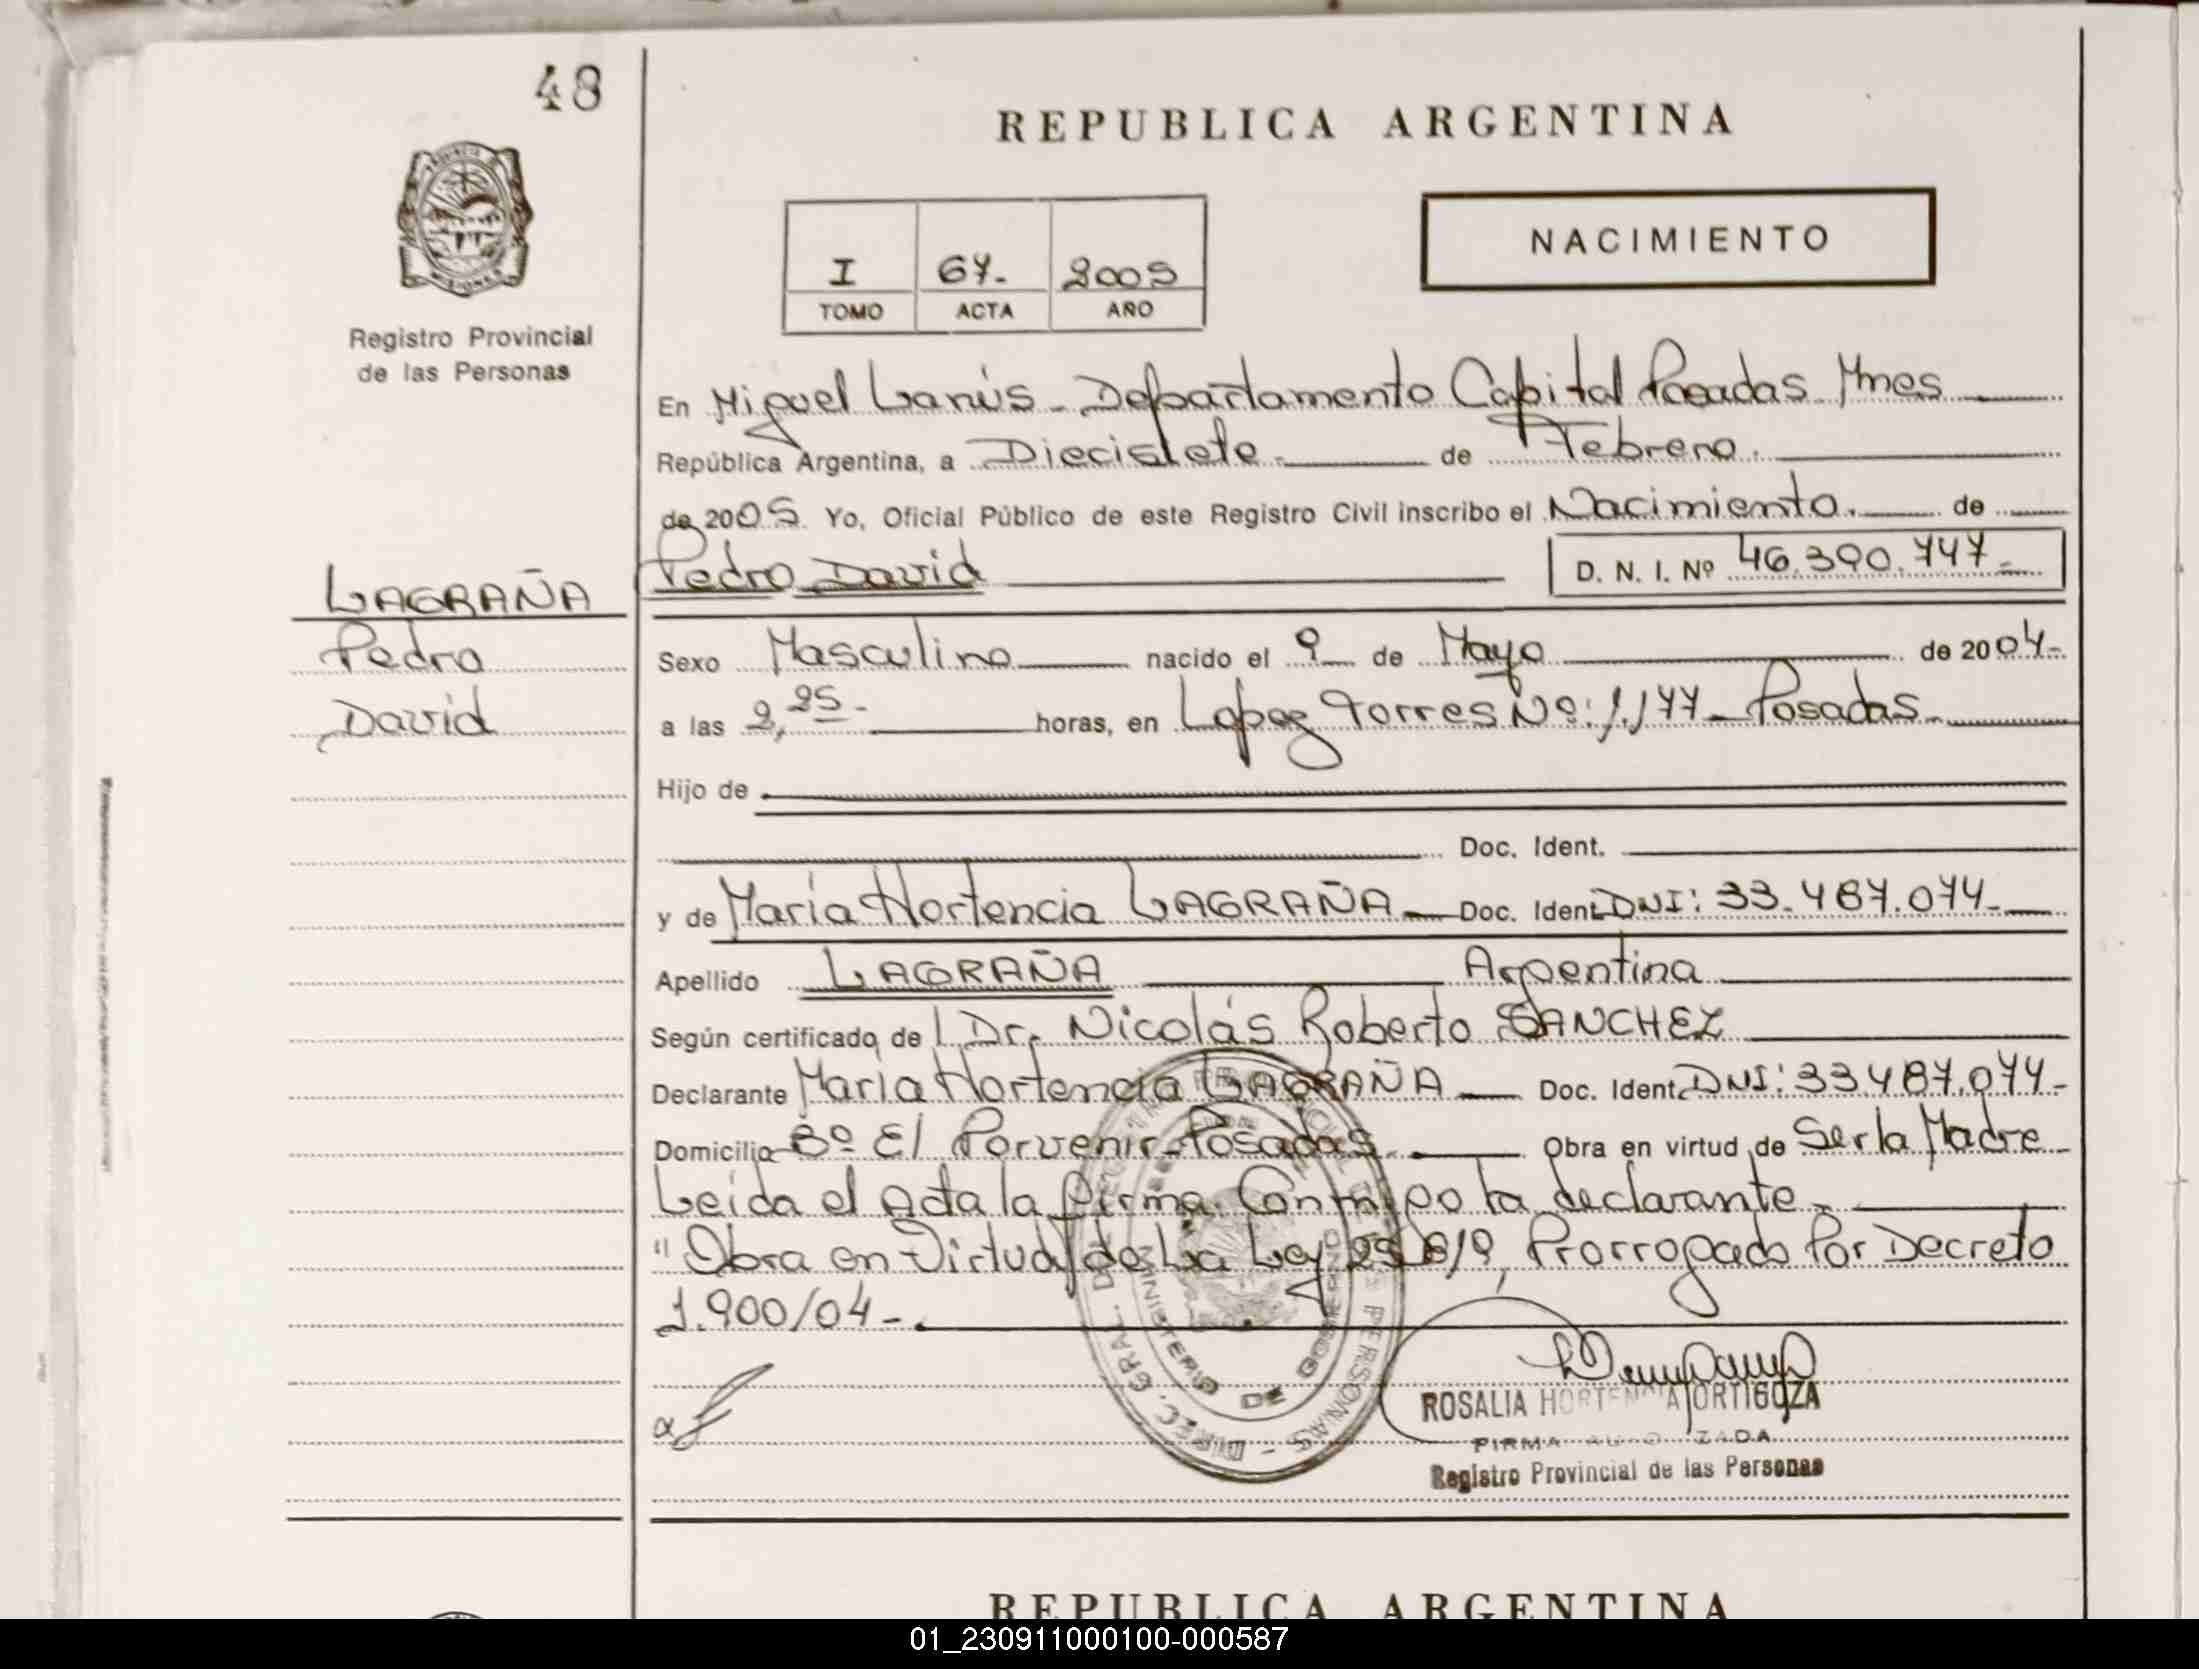 48
REPUBLICA ARGENTINA
PROVINCIA DE MISIONES
Registro Provincial
de las Personas
NACIMIENTO
I 67- 2005
TOMO ACTA AÑO
En Miguel Lanús - Departamento Capital Posadas Mnes
República Argentina, a Diecisiete- de Febrero.
de 2005 Yo, Oficial Público de este Registro Civil inscribo el Nacimiento. de
Pedro David D. N. I. Nº 46.390.747-
LAGRAÑA
Pedro
David
Sexo Masculino nacido el 9 de Mayo de 2004-
a las 2,25- horas, en Lopez Torres Nº: 1.177 - Posadas-
Hijo de
Doc. Ident.
y de María Hortencia LAGRAÑA Doc. Ident. DNI: 33.487.074-
Apellido LAGRAÑA Argentina
Según certificado de Dr. Nicolás Roberto SANCHEZ
Declarante María Hortencia LAGRAÑA Doc. Ident. DNI: 33487.074-
Domicilio Bº El Porvenir-Posadas. Obra en virtud de Ser la Madre
Leida el Acta la firma Conmigo la declarante-
"Obra en Virtud de La Ley 25.819, Prorrogado Por Decreto
1.900/04-.
DIREC. GRAL. DEL REGISTRO PROVINCIAL DE LAS PERSONAS -
MINISTERIO DE GOBIERNO
ROSALIA HORTENCIA ORTIGOZA
FIRMA AUTORIZADA
Registro Provincial de las Personas
REPUBLICA ARGENTINA
01_230911000100-000587